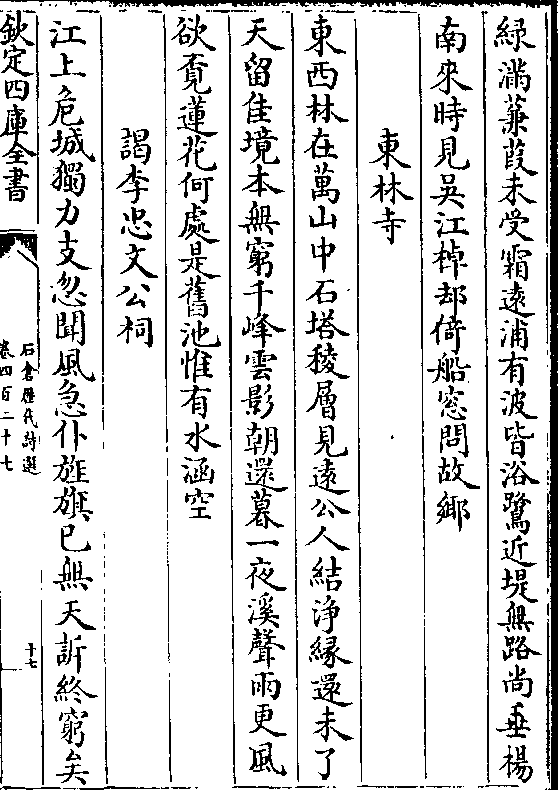 緑滿蒹葭未受霜遠浦有波皆浴鷺近堤無路尚垂楊
南來時見吳江棹却倚船窓問故鄉
東林寺
東西林在萬山中石塔稜層見遠公人結浄縁還未了
天留佳境本無窮千峰雲影朝還暮一夜溪聲雨更風
欲覔蓮花何處是舊池惟有水涵空
謁李忠文公祠
江上危城獨力支忽聞風急仆旌旗已無天訴終窮矣
欽定四庫全書
石倉歴代詩選
卷四百二十七
十七